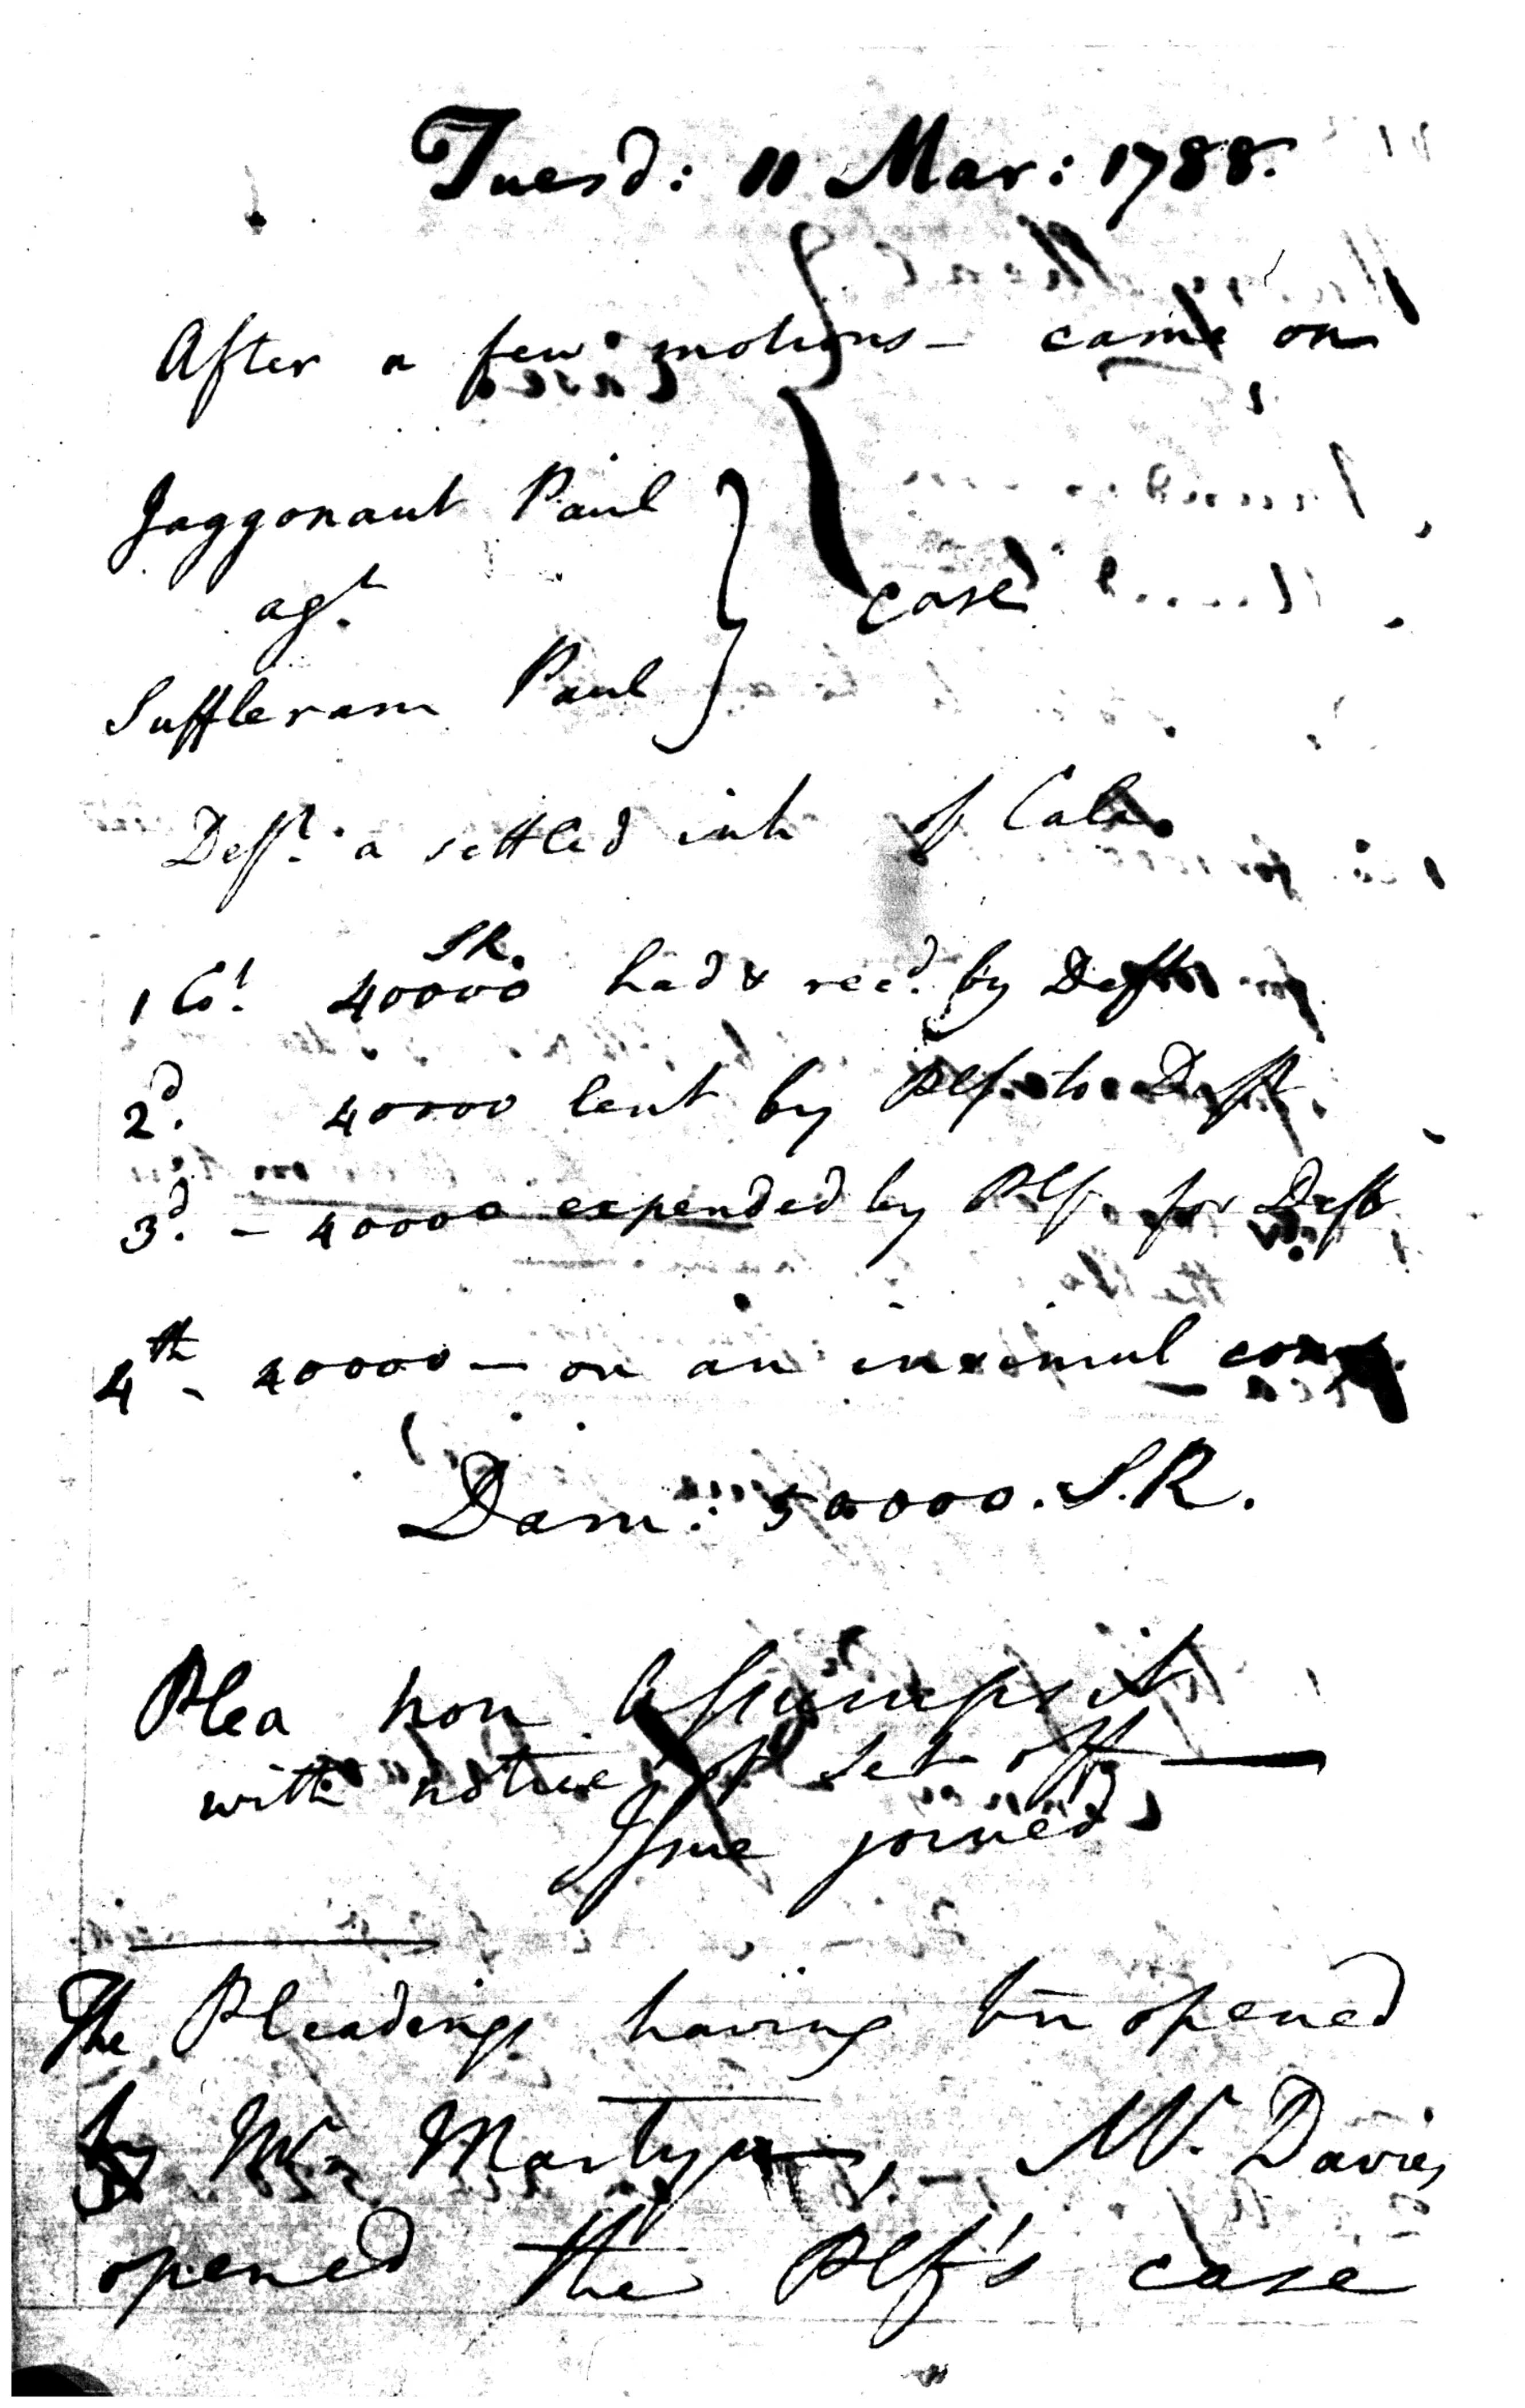 Tuesd: 11 Mar: 1788.
After a few motions – came on
Jaggonaut Paul
agt.
case
Suffleram Paul
Deft. a settled inh of Cala.
S.R.
1 Ct. 40000 had & recd. by Deft
2d. 40000 lent by Plf. to Deft
3d. – 40000 expended by Plf. for Deft
4th – 40000 – on an insimul comp
Dam: 50000. S.R.
Plea non Assumpsit
with notice of set off —
Issue joined
The Pleadings having been opened
by Mr. Martyn, – Mr. Davies
opened the Plf's case